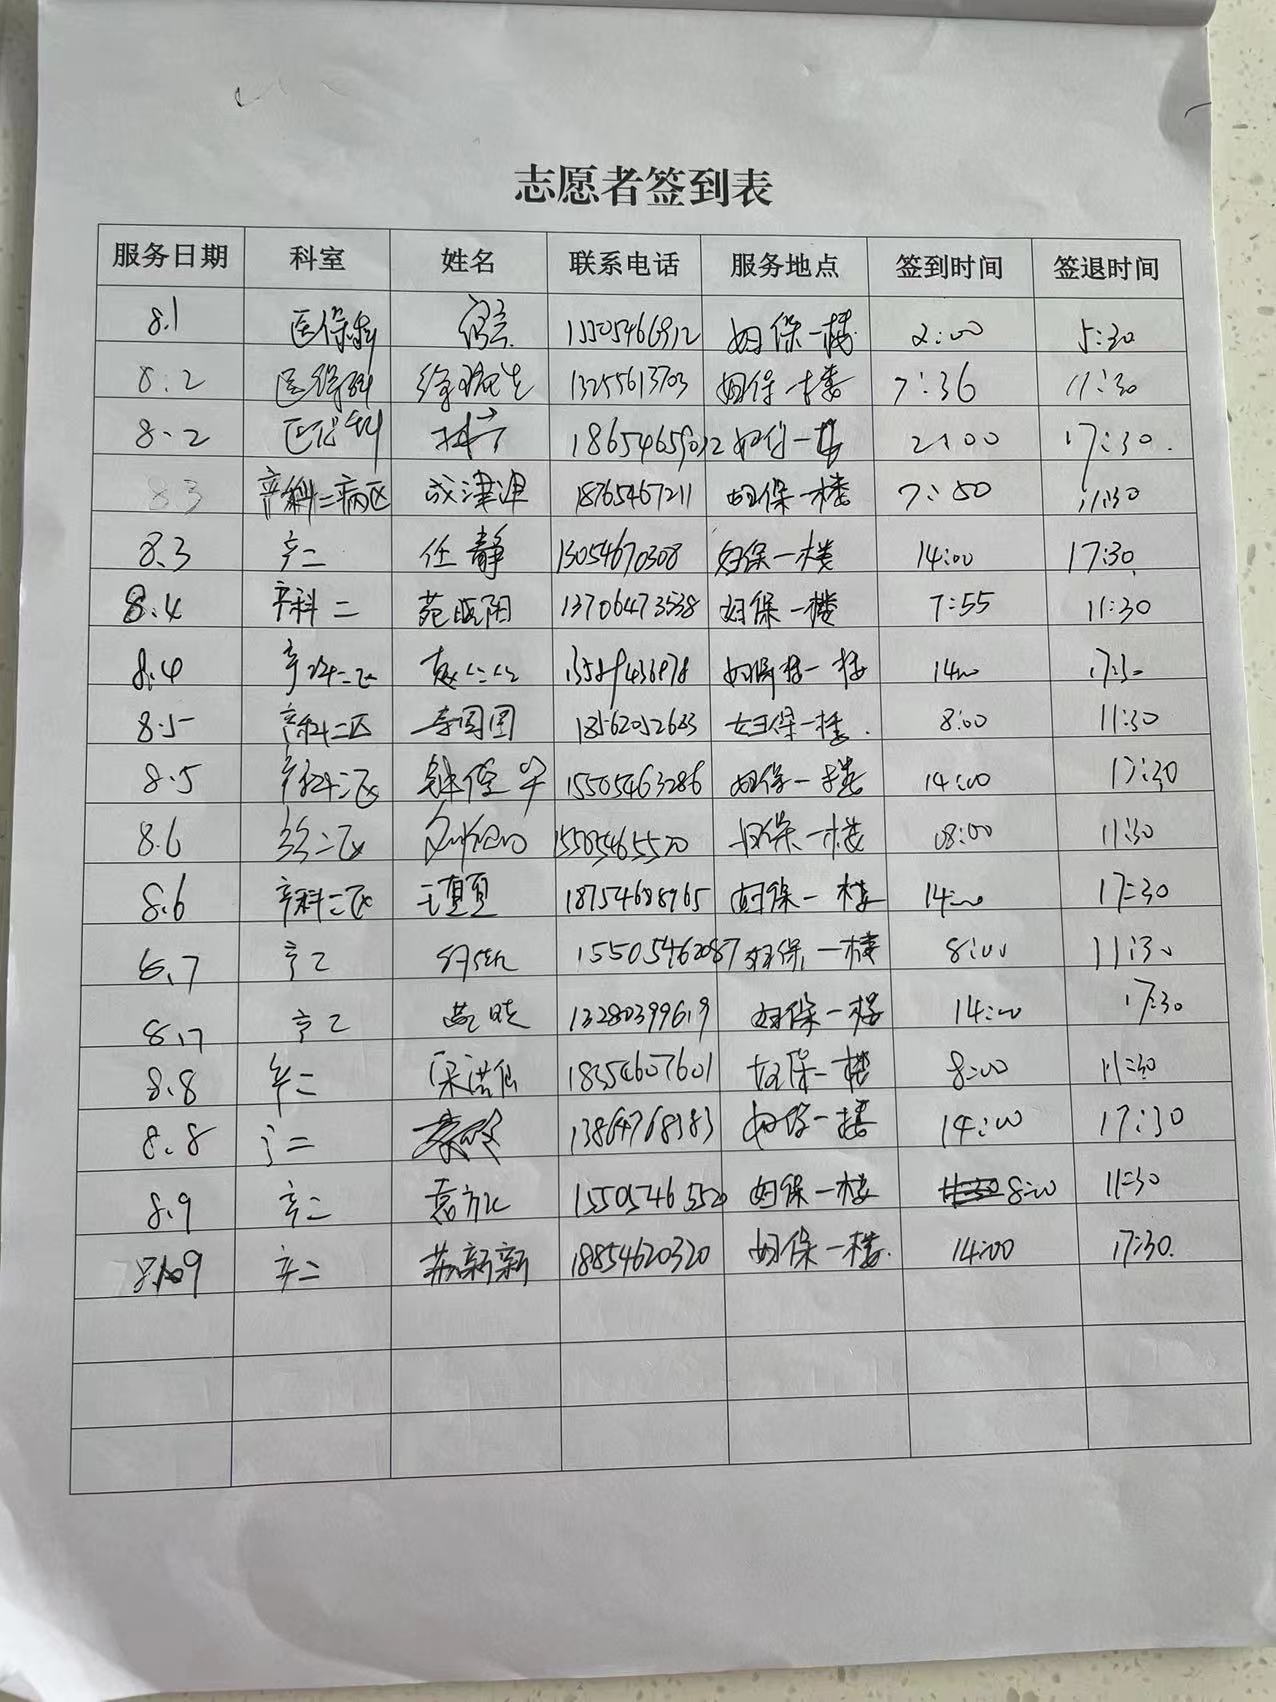 志愿者签到表
服务日期 科室 姓名 联系电话 服务地点 签到时间 签退时间
8.1 医保科 15505466912 妇保一楼 2:00 5:30
8.2 医保科 13255613703 妇保一楼 7:36 11:30
8.2 医保科 18654659012 妇保一楼 2:00 17:30.
8.3 产科二病区 成津津 18765467211 妇保一楼 7:50 11:30
8.3 产二 任静 13054670308 妇保一楼 14:00 17:30
8.4 产科二 苑晓阳 13706473538 妇保一楼 7:55 11:30
8.4 产科二区 一楼 14:00 17:30
8.5 产科二区 李园园 18562052683 妇保一楼. 8:00 11:30
8.5 产科二区 15505463286 妇保一楼 14:00 17:30
8.6 二区 15505465520 妇保一楼 08:00 11:30
8.6 产科二区 王夏夏 妇保一楼 14:00 17:30
8.7 产二 15505462087 妇保一楼 8:00 11:30
8.7 产二 13280399619 妇保一楼 14:00 17:30
8.8 产二 宋诺仙 18354607601 妇保一楼 8:00 11:30
8.8 产二 秦晓 13864768383 妇保一楼 14:00 17:30
8.9 产二 15505465520 妇保一楼 8:00 11:30
8.9 产二 苏新新 18854620320 妇保一楼. 14:00 17:30.